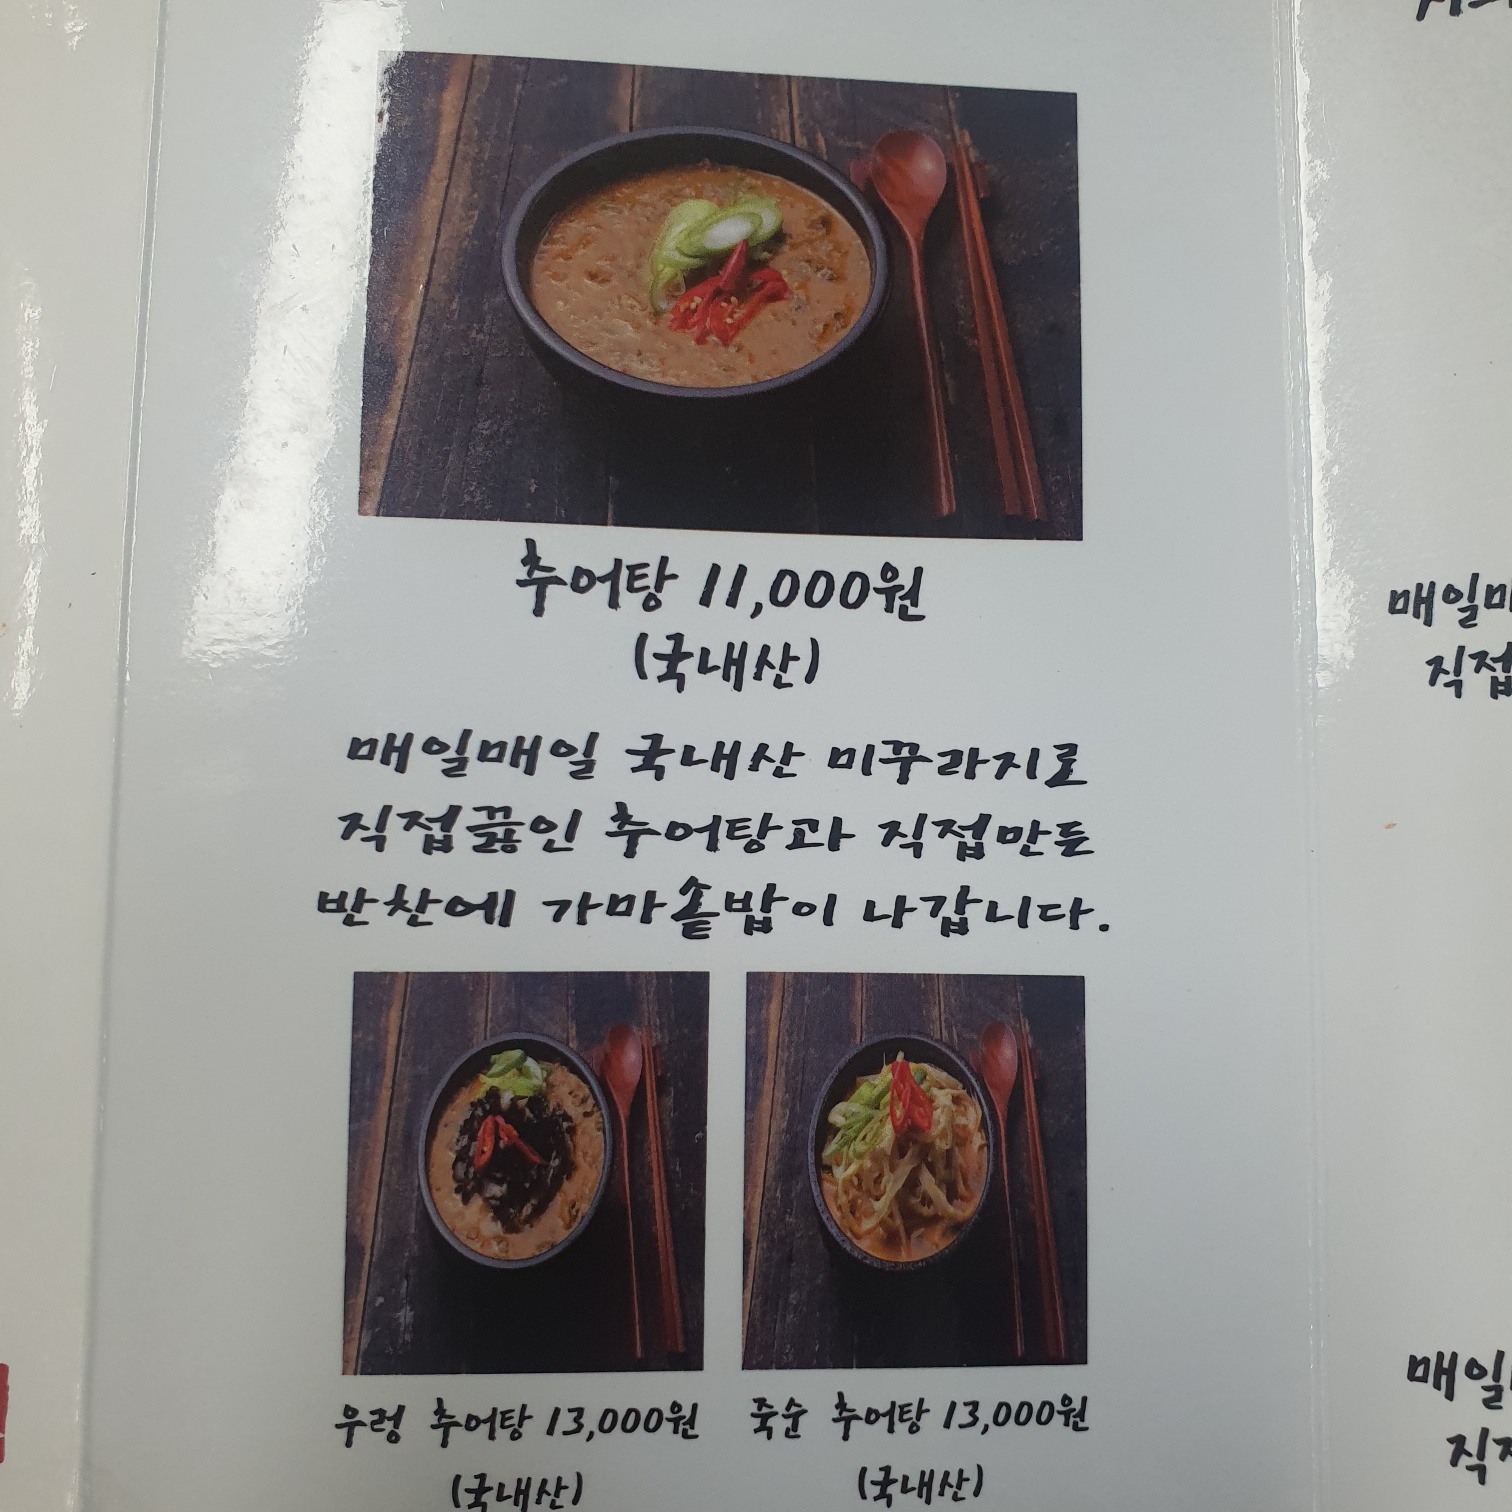 추어탕 11,000원
(국내산)
매일매일 국내산 미꾸라지로
직접끓인 추어탕과 직접만든
반찬에 가마솥밥이 나갑니다.
우렁 추어탕 13,000원
(국내산)
죽순 추어탕 13,000원
(국내산)
매일
직접
매일
직